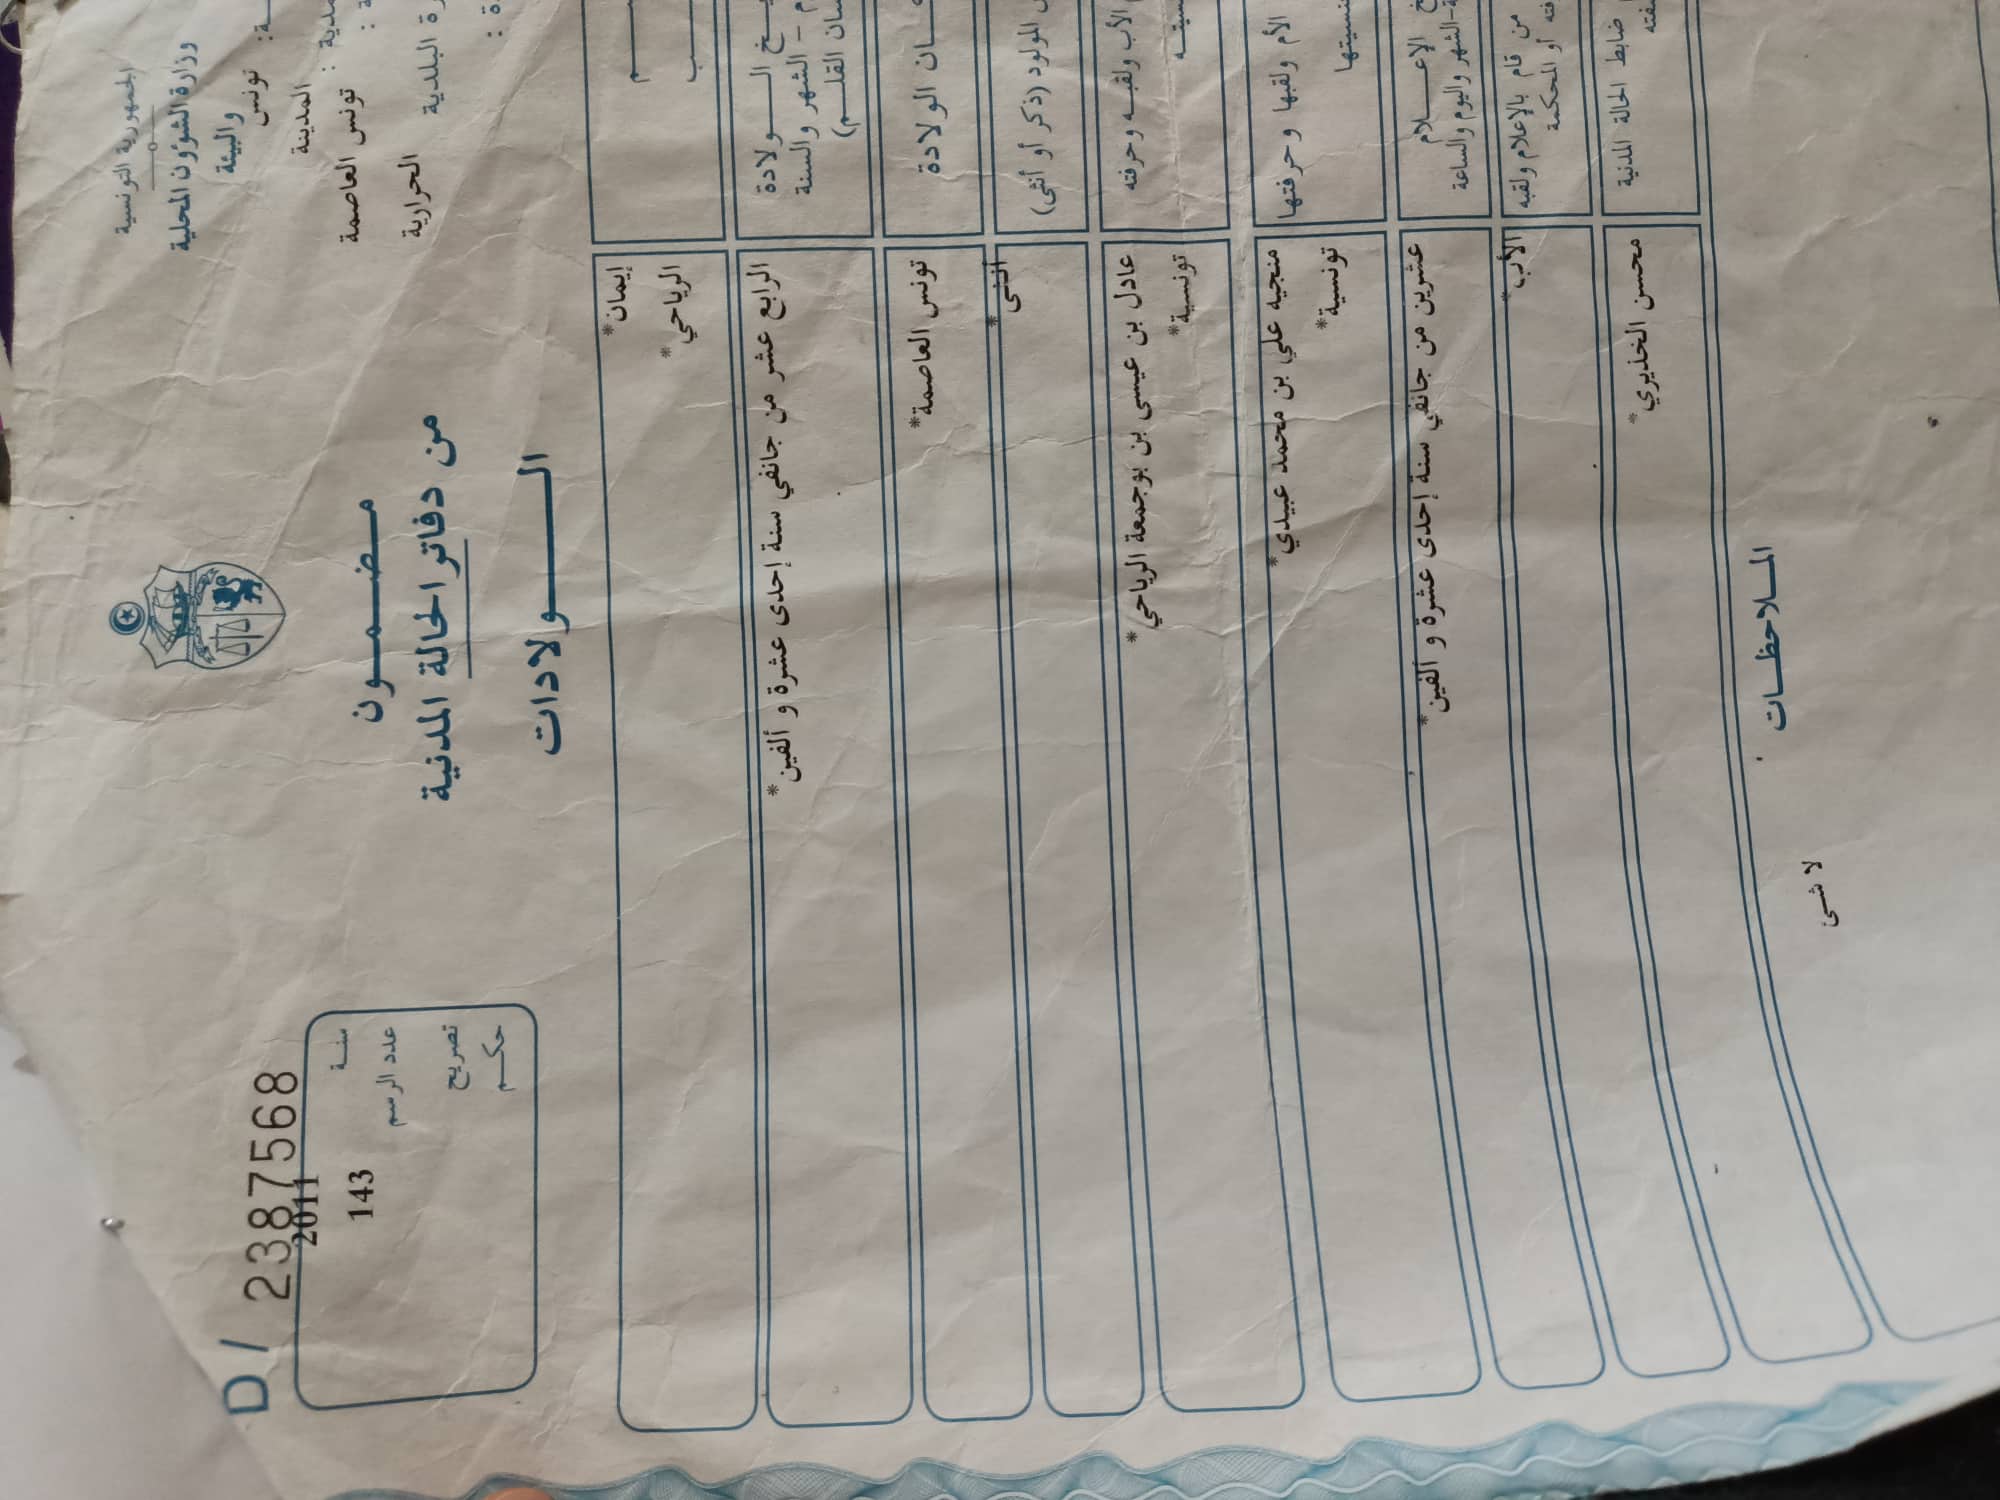 الجمهورية التونسية
وزارة الشؤون المحلية
والبيئة
تونس
المدينة
تونس العاصمة
الحرارية
البلدية
مضمون
من دفاتر الحالة المدنية
الولادات
D / 2387568
سنة 2011
عدد الرسم 143
تصريح
حكم
إيمان*
الرياحي*
الولادة
الشهر والسنة
القلم)
الرابع عشر من جانفي سنة إحدى عشرة و ألفين*
الولادة
تونس العاصمة*
المولود (ذكر أو أنثى)
أنثى*
الأب ولقبه وحرفته
عادل بن عيسى بن بوجمعة الرياحي*
تونسية*
الأم ولقبها وحرفتها
منجيه علي بن محمد عبيدي*
تونسية*
الإعلام
الشهر واليوم والساعة
عشرين من جانفي سنة إحدى عشرة و ألفين*
من قام بالإعلام ولقبه
أو المحكمة
الأب*
ضابط الحالة المدنية
محسن الخذيري*
الملاحظات
لا شيء